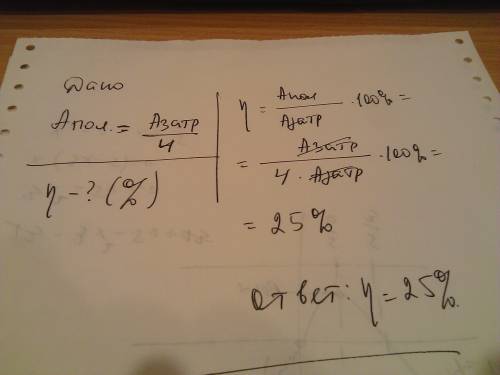 Дано
Aпол. = Aзатр / 4
η - ? (%)
η = Aпол / Aзатр · 100% =
= Aзатр / 4 · Aзатр · 100% =
= 25%
ответ: η = 25%.